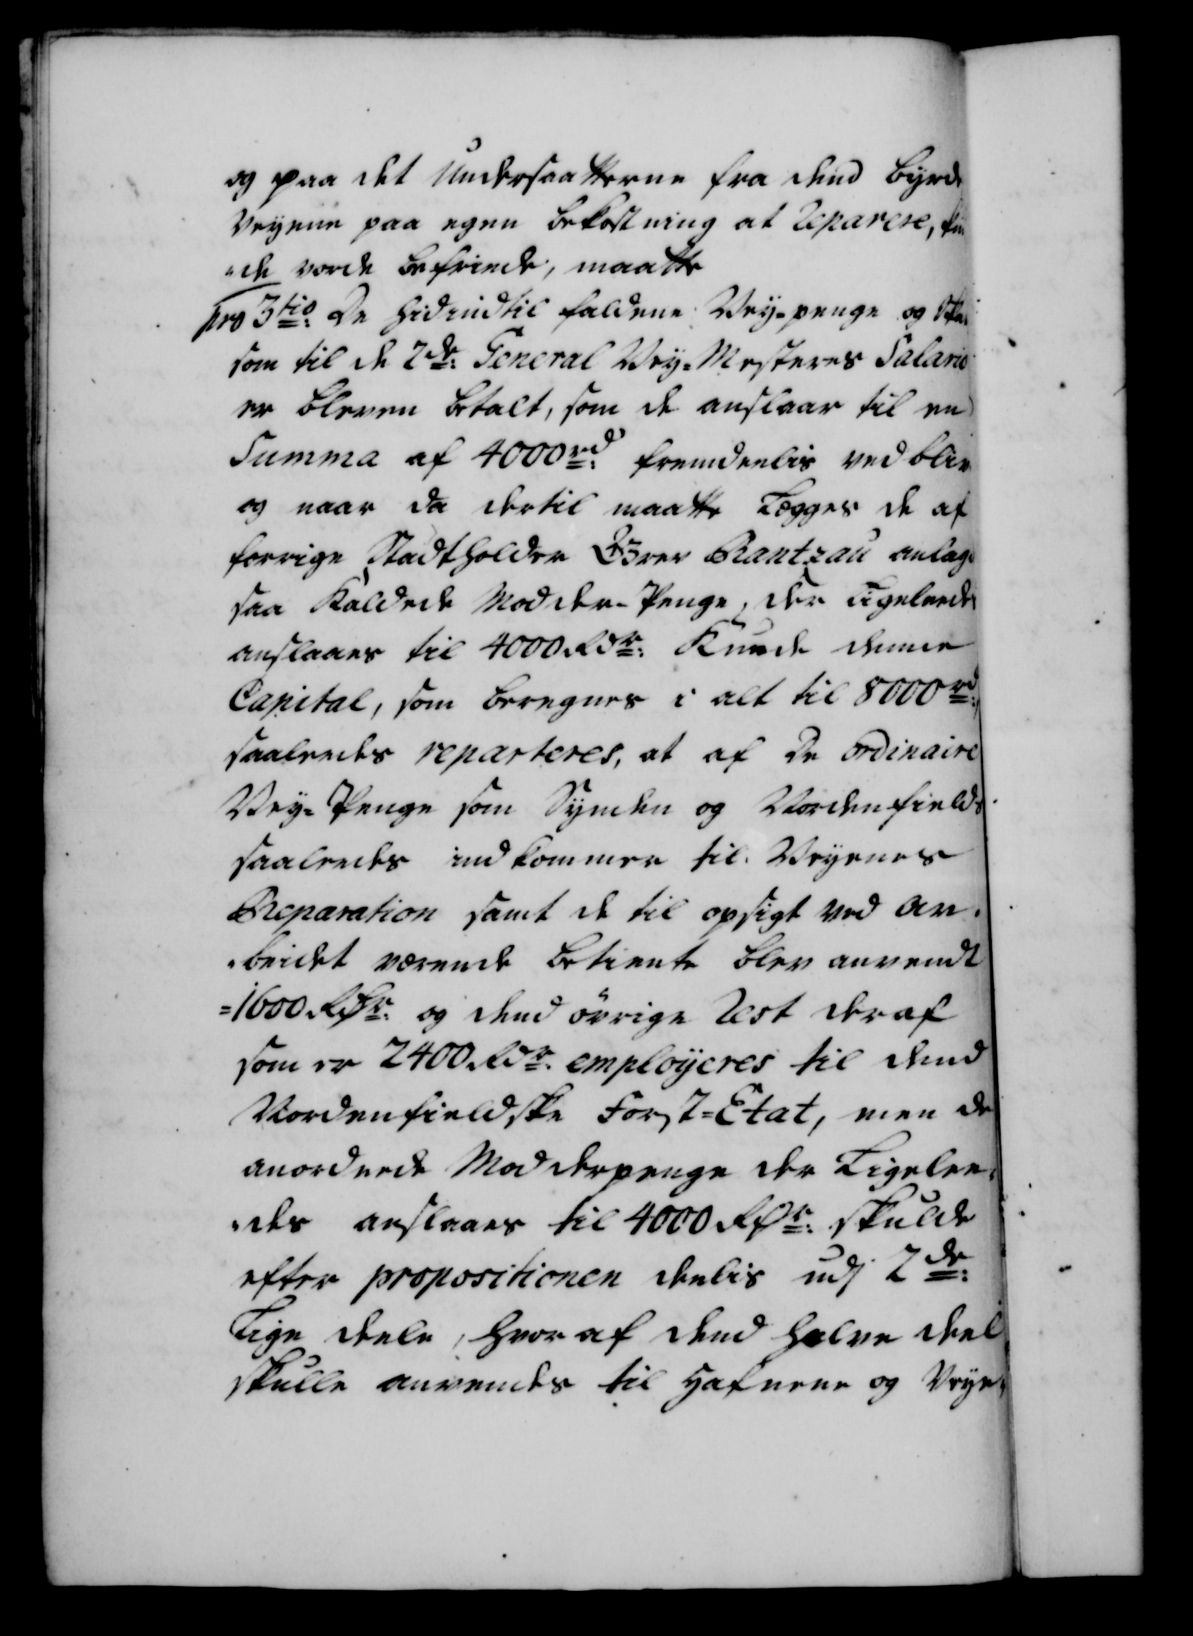 og paa det Undersaatterne fra dend Byrde
Veyene paa egen bekostning at Reparere,
-de vorde befriede, maatte
pro 3tio: De hidindtil faldene Vey-penge og
som til de 2de: General Vey-Mesteres Salario
er bleven betalt, som de anslaar til en
Summa af 4000rd: fremdeelis ved blive
og naar da dertil maatte Lægges de af
forrige Stadtholder Grev Rantzau anlagde
saa Kaldede Modder-Penge, der Ligeleedes
anslaaes til 4000 Rdr: Kunde denne
Capital, som beregnes i alt til 8000rd:,
saaleedes reparteres, at af De ordinaire
Vey-Penge som Synden og Nordenfields
saaleedes indkommer til Veyenes
Reparation samt de til opsigt ved Ar-
-beidet værende betiente blev anvendt
=1600 Rdr: og dend övrige Rest deraf
som er 2400 Rdr: employeres til dend
Nordenfieldske Forst=Etat, men de
anordnede Modderpenge der Ligelee-
-des anslaaes til 4000 Rdr: skulde
efter propositionen deelis udj 2de:
Lige deele, hvoraf dend halve deel
skulle anvendes til Hafnene og Veye-